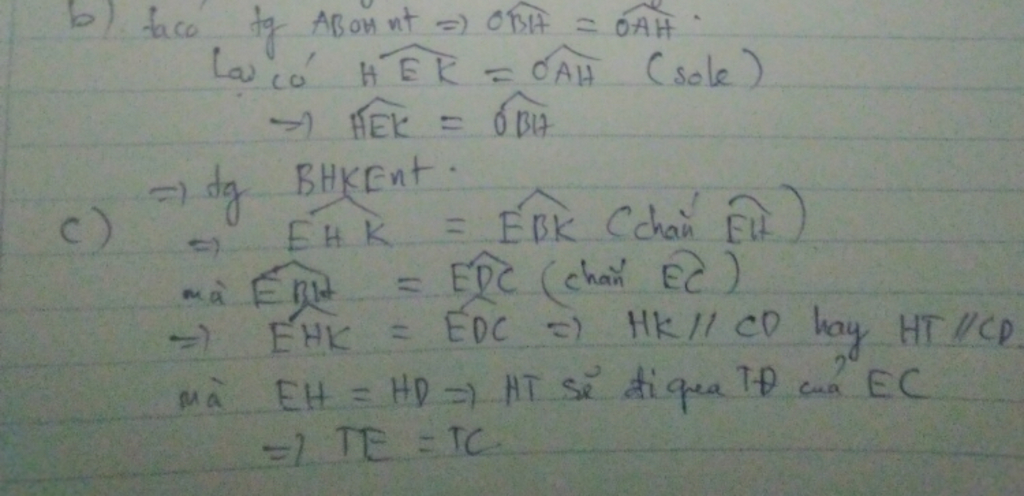 b) ta có tg ABOH nt => OBH = OAH.
Lại có HEK = OAH (sole)
=> HEK = OBH
=> tg BHKE nt.
c) => EHK = EBK (chắn EH)
mà EBH = EDC (chắn EC)
=> EHK = EDC => HK // CD hay HT // CD
mà EH = HD => HT sẽ đi qua TĐ của EC
=> TE = TC